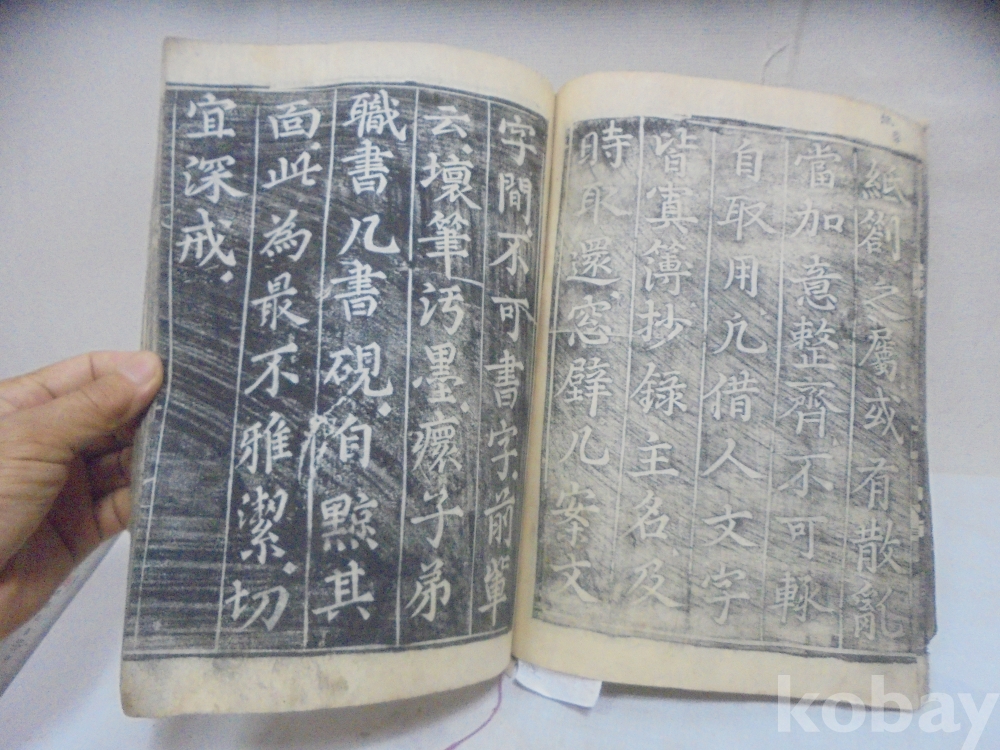 紙劄之屬或有散亂
當加意整齊不可輒
自取用凡借人文字
皆寘簿抄錄主名及
時取還窓壁几案文
字間不可書字前輩
云壞筆汚墨瘝子弟
職書几書硯自黥其
面此為最不雅潔切
宜深戒
kobay